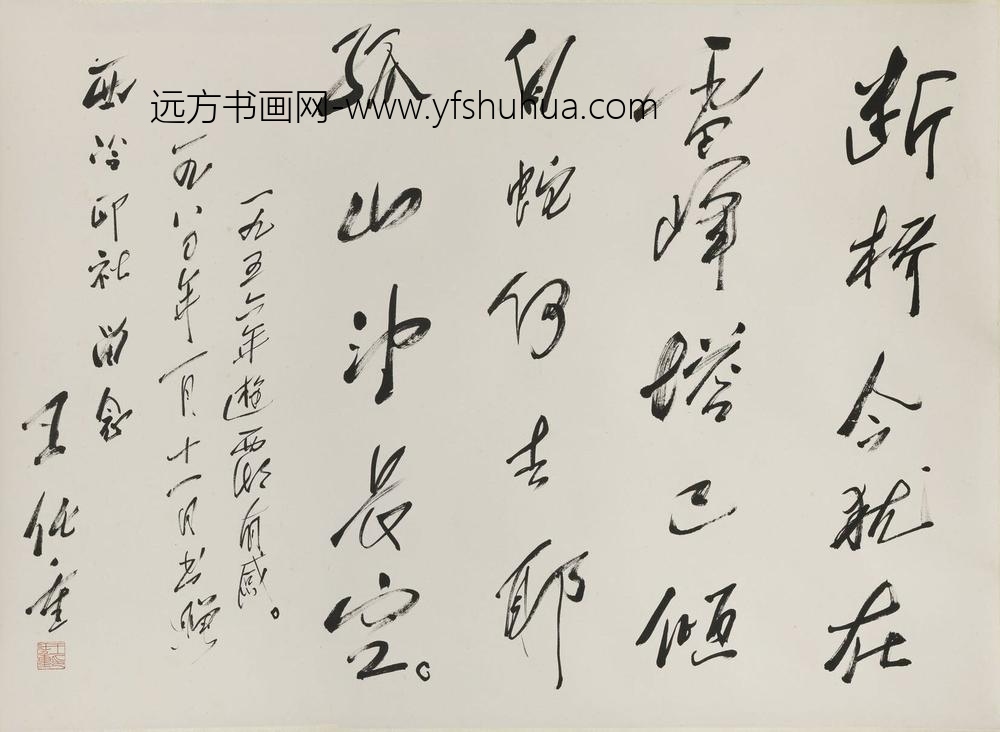 断桥今犹在
雷峰塔已倾
白蛇何去耶
孤山望长空。
一九五六年遊西湖有感。
一九八〇年一月十一日书赠
西泠印社留念
王任重
远方书画网-www.yfshuhua.com